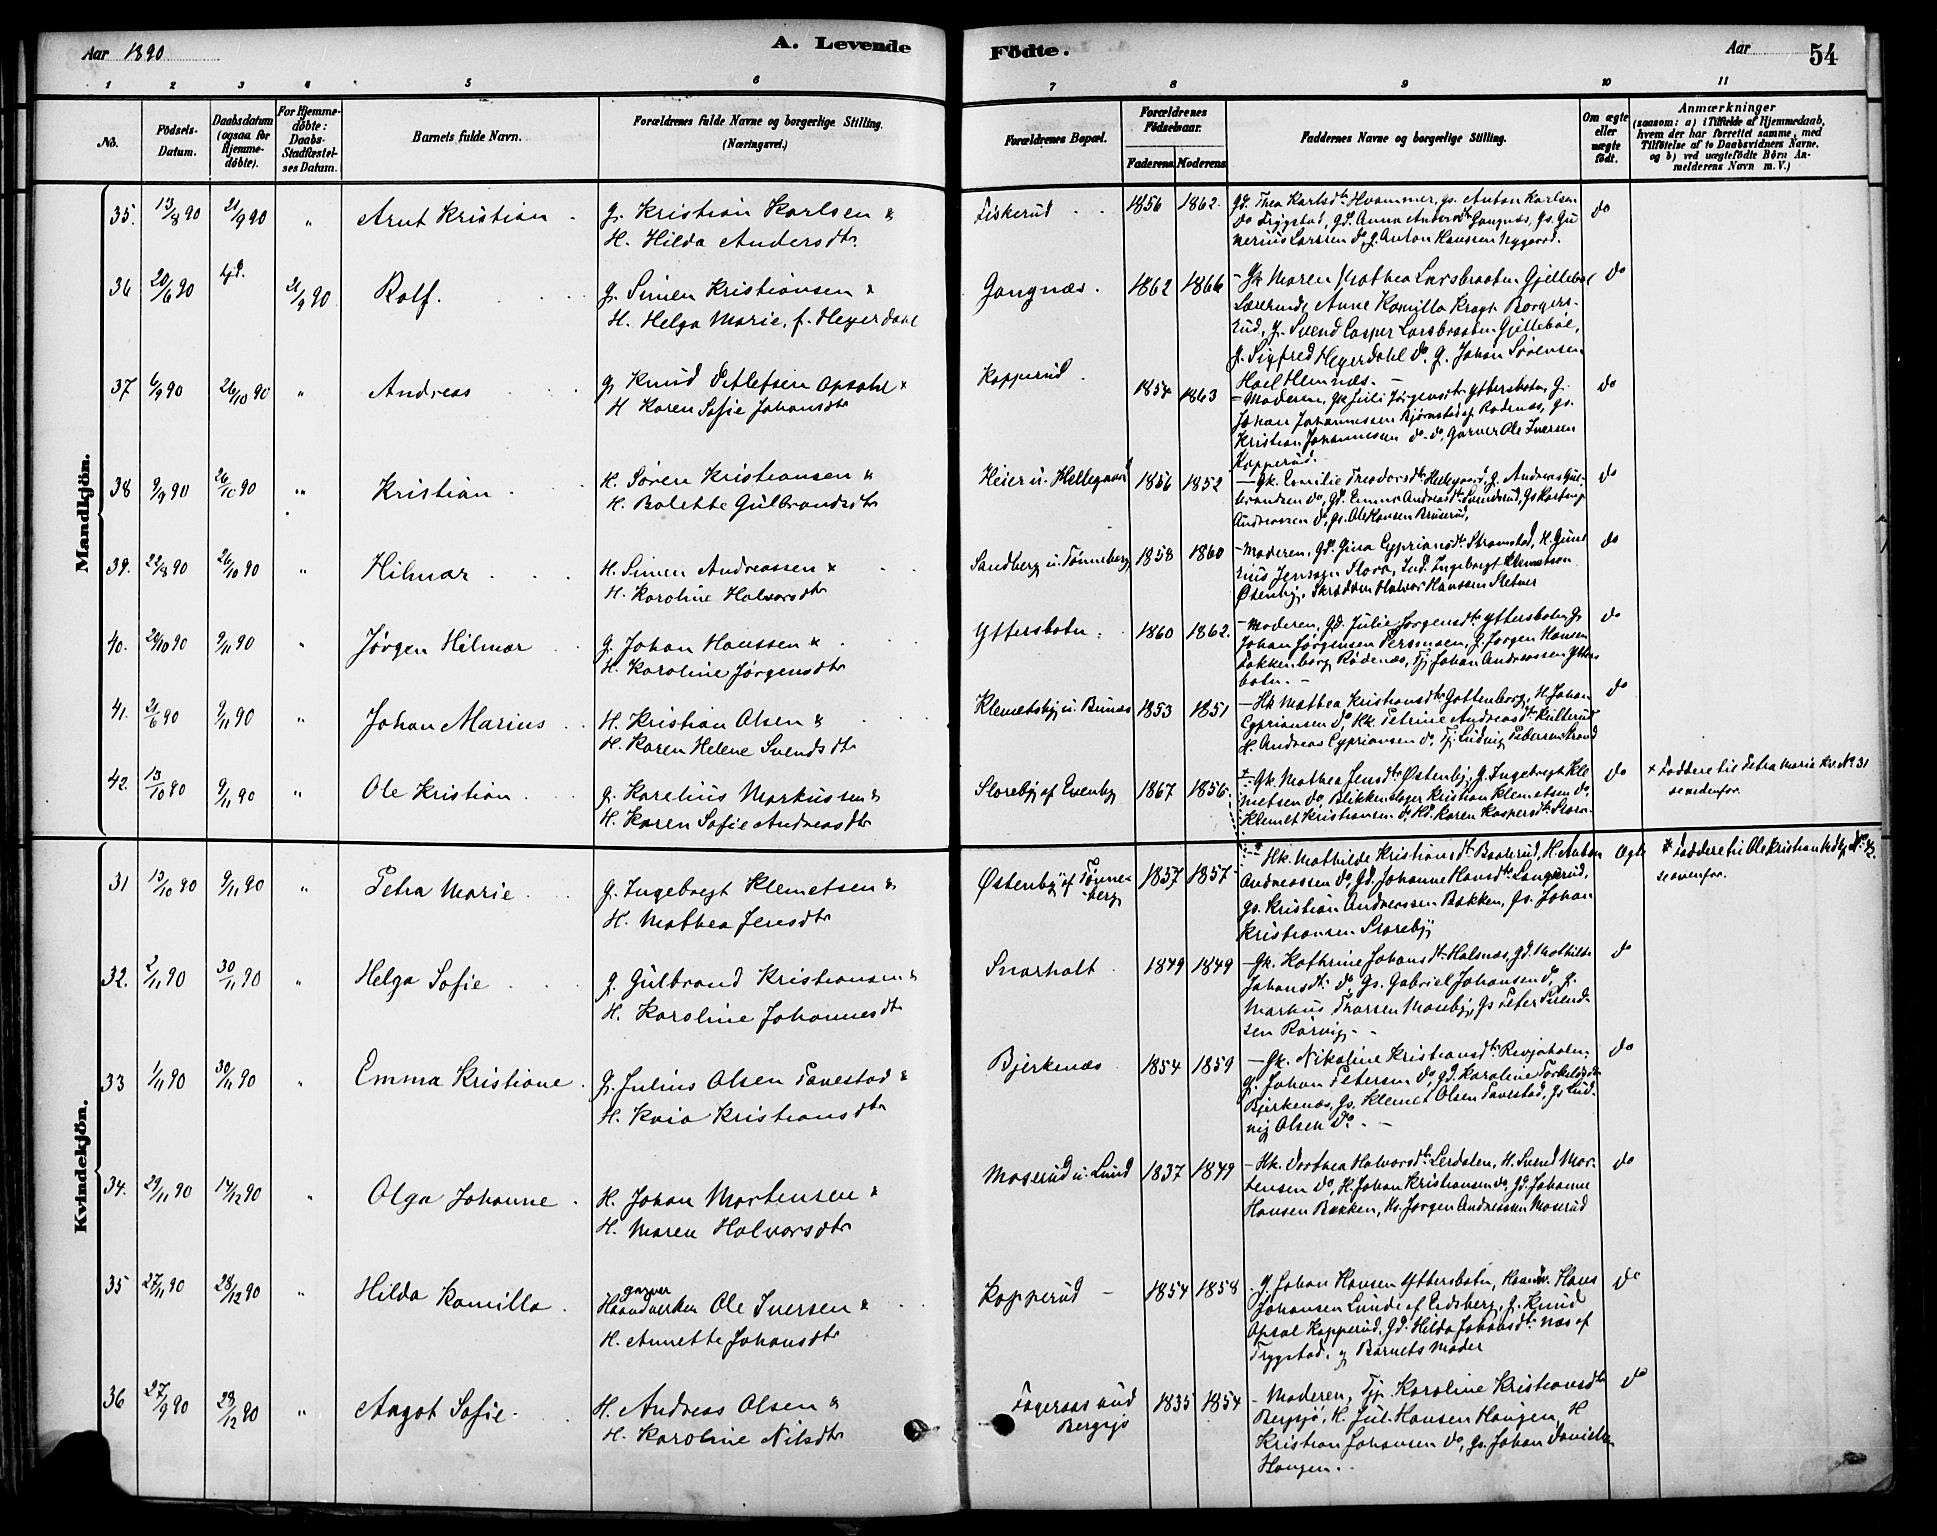 Aar 1890
A. Levende
Födte.
Aar
54
1 2 3 4 5 6
7 8 9 10 11
No.
Födsels-
Datum.
Daabsdatum
(ogsaa for
Hjemme-
döbte).
For Hjemme-
döbte:
Daabs-
Stadfæstel-
ses Datum.
Barnets fulde Navn.
Forældrenes fulde Navne og borgerlige Stilling.
(Næringsvei.)
Forældrenes Bopæl.
Forældrenes
Födselsaar.
Faderens.
Moderens.
Faddernes Navne og borgerlige Stilling.
Om ægte
eller
uægte
födt.
Anmærkninger
(saasom: a) i Tilfælde af Hjemmedaab,
hvem der har forrettet samme, med
Tilföielse af to Daabsvidners Navne.
og b) ved uægtefödte Börn An-
melderens Navn m. V.)
Mandkjön.
35. 13/8 90 21/9 90 " Arnt Kristian
G. Kristian Karlsen &
H. Hilda Andersdtr
Fiskerud 1856 1862.
Gd. Thea Karlsdtr Hvammer, gs. Anton Karlsen
do Trygstad, Gd. Anna Andersdtr Gangnæs, Gs. Gu
nerius Larssen do, g. Anton Hanssen Nygaard.
do
36 20/6 90 hjd. 21/9 90 Rolf.
G. Simen Kristiansen &
H. Helga Marie, f. Heyerdahl
Gangnæs. 1862 1866
- Gk Maren Mathea Larsbraaten Gjellebøl
Lærerinde Anne Kamilla Kragh Borgers-
rud, G. Svend Casper Larsbraaten Gjellebøl,
G. Sigfred Heyerdahl do. G. Johan Sørensen
Hoel Hemnæs. -
do
37 6/9 90 26/10 90 " Andreas
G. Knud Detlefsen Opsahl &
H. Karen Sofie Johansdtr
Kopperud 1854 1863
- Moderen, Gk Juli Jørgensdtr Yttersbøtn, G.
Johan Johannessen Bjørnstad af Rødenæs, gs.
Kristian Johannessen do - do, Garver Ole Iversen
Kopperud.
do
38 9/9 90 26/10 90 " Kristian
H. Søren Kristiansen &
H. Bolette Gulbrandsdtr
Heier u. Hellegaard 1856 1852
- Gk. Emilie Theodorsdtr Hellegaard, G. Andreas Gul-
brandsen do, Gd. Emma Andreasdtr Svendsrud, Gs
Andreassen do, gs. Ole Hansen Bruserud,
do
39. 22/8 90 26/10 90 " Hilmar
H. Simen Andreassen &
H. Karoline Halvorsdtr
Sandberg u. Tønneberg 1858 1860
- Moderen, Gd. Gina Cypriansdtr Strømstad, H. Gune
rius Jenssen Flora, Ind. Ingebregt Klemetsen
Østenby, Skrædder Halvor Hanssen Sletner
do
40. 20/10 90 9/11 90 " Jørgen Hilmar
G. Johan Hanssen &
H. Karoline Jørgensdtr
Yttersbøtn 1860 1862.
- Moderen, Gd. Julie Jørgensdtr Yttersbøtn, G.
Johan Jørgensen, G. Jørgen Hansen
Rødenæs, Tj Johan Andreassen Ytters
bøtn. -
do
41. 21/6 90 9/11 90 " Johan Marius
H. Kristian Olsen &
H. Karen Helene Svendsdtr
Klemetsby u. Bunæs 1853 1851
- Hk Mathea Kristiansdtr Gottenborg, H. Johan
Cypriansen do, Hk. Petrine Andreasdtr Kulterud
H. Andreas Cypriansen do, Tj. Ludvig Pedersen Strand
do
42. 13/10 90 9/11 90 " Ole Kristian
G. Karelius Markussen &
H. Karen Sofie Andreasdtr
Storeby af Evenby 1867 1856.
+ - Gk. Mathea Jensdtr Østenby, G. Ingebregt Kle
metsen do, Blikkenslager Kristian Klemetsen do,
Klemet Kristiansen do, Kd. Karen Kaspersdtr Storø.
do
+ Faddere til Petra Marie Kv. No 31
se nedenfor.
Kvindekjön.
31 13/10 90 9/11 90 " Petra Marie
G. Ingebregt Klemetsen &
H. Mathea Jensdtr
Østenby af Tønne-
berg 1857 1857.
- Hk. Mathilde Kristiansdtr Baaterud, H. Anton
Andreassen do, Gd. Johanne Hansdtr Langerud,
Gs. Kristian Andreassen Bakken, Gs. Johan
Kristiansen Storeby
Ægte
* Faddere til Ole Kristian No 42.
se ovenfor.
32. 2/11 90 30/11 90 " Helga Sofie
G. Gulbrand Kristiansen &
H. Karoline Johannesdtr
Snarholt 1849 1849
- Gk. Kathrine Johansdtr Halsnæs, Gd. Mathilde
Johansdtr do, Gs. Gabriel Johansen do, G.
Markus Thorsen Moseby, Gs Peter Svend-
sen Rørvig. -
do
33 1/11 90 30/11 90 " Emma Kristiane
G. Julius Olsen Tavestad &
H. Kaia Kristiansdtr
Bjerkenæs 1854 1859
- Gk. Nikoline Kristiansdtr
G. Johan Petersen do, Gd. Karoline Torkelsdtr
Bjerkenæs, Gs. Klemet Olsen Tavestad, Gs Lud-
vig Olsen do. -
do
34. 29/11 90 14/12 90 " Olga Johanne
H. Johan Mortensen &
H. Maren Halvorsdtr
Moserud u. Lund 1837 1849
- Hk. Dorthea Halvorsdtr Lerdalen, H. Svend Mor-
tensen do, H. Johan Kristiansen do, Gd. Johanne
Hansen Bakken, Hs. Jørgen Andreassen Moserud
do
35 27/11 90 28/12 90 " Hilda Kamilla
garver
Haandverker Ole Iversen &
H. Annette Johansdtr
Kopperud - 1854 1858
G. Johan Hansen Yttersbøtn, Haandv. Hans
Johansen Lunde af Eidsberg, G. Knud
Opsal Kopperud, Gd. Hilda Johansdtr Næs af
Trygstad. og Barnets Moder
do
36 27/9 90 28/12 90 " Aagot Sofie.
H. Andreas Olsen &
H. Karoline Nilsdtr
Fageraas und
Bergsjø 1835 1854
- Moderen, Tj. Karoline Kristiansdtr
Bergsjø, H. Jul. Hansen Haugen, H
Kristian Johansen do, Gs. Johan Danielsen
Haugen.
do